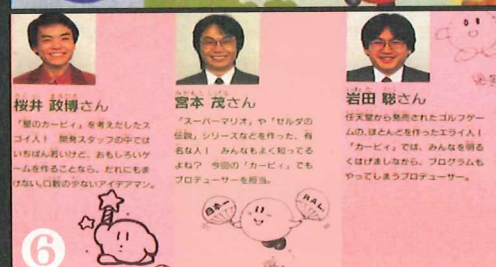 さくらい まさひろ
桜井 政博さん
「星のカービィ」を考えだしたス
ゴイ人！ 開発スタッフの中では
いちばん若いけど、おもしろいゲ
ームを作ることなら、だれにもま
けない。口数の少ないアイデアマン。
みやもと しげる
宮本 茂さん
「スーパーマリオ」や「ゼルダの
伝説」シリーズなどを作った、有
名な人！ みんなもよく知ってる
よね？ 今回の「カービィ」でも
プロデューサーを担当。
日本一
HAL
いわた さとる
岩田 聡さん
任天堂から発売されたゴルフゲー
ムの、ほとんどを作ったエライ人！
「カービィ」では、みんなを明る
くはげましながら、プログラムも
やってしまうプロデューサー。
6